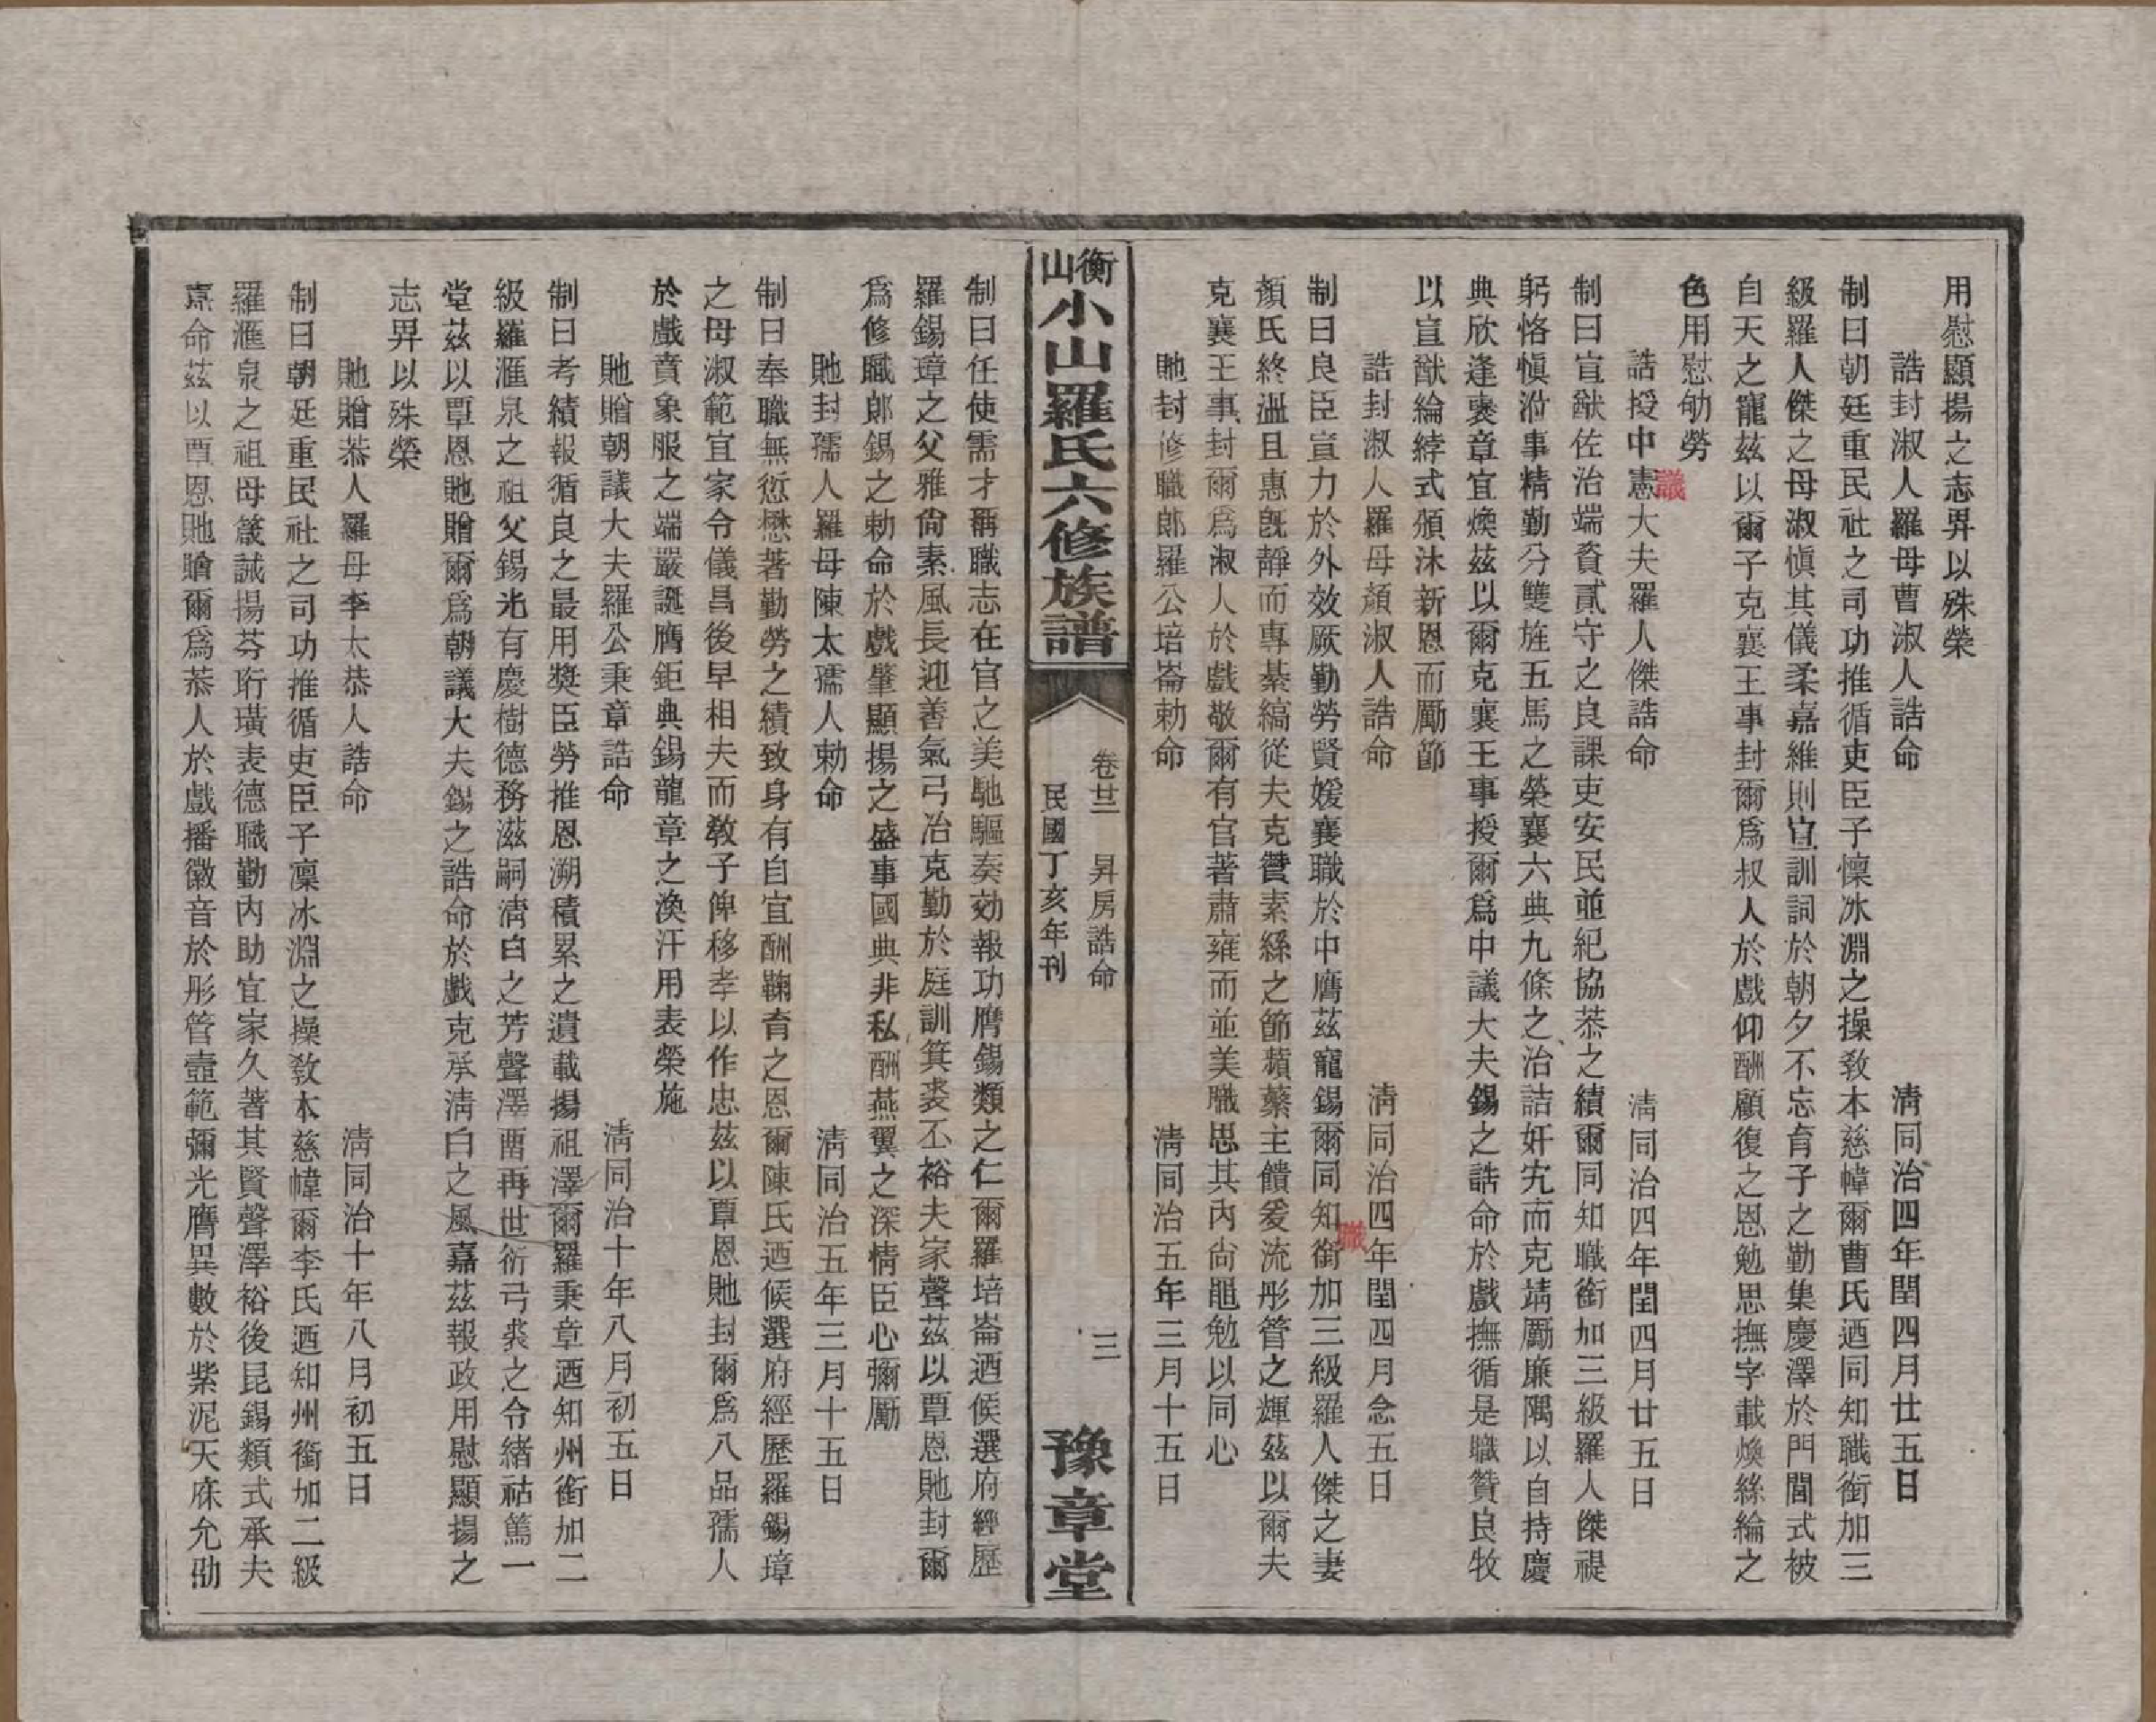 用慰顯揚之志畀以殊榮
誥封淑人羅母曹淑人誥命　清同治四年閏四月廿五日
制曰朝廷重民社之司功推循吏臣子懍冰淵之操敎本慈幃爾曹氏迺同知職銜加三
級羅人傑之母淑慎其儀柔嘉維則宣訓詞於朝夕不忘育子之勤集慶澤於門閭式被
自天之寵茲以爾子克襄王事封爾爲叔人於戲仰酬顧復之恩勉思撫字載煥絲綸之
色用慰劬勞
誥授中憲大夫羅人傑誥命　清同治四年閏四月廿五日
議
制曰宣猷佐治端資貳守之良課吏安民並紀協恭之績爾同知職銜加三級羅人傑禔
躬恪愼涖事精勤分雙旌五馬之榮襄六典九條之治詰奸宄而克靖厲廉隅以自持慶
典欣逢褒章宜煥茲以爾克襄王事授爾爲中議大夫錫之誥命於戲撫循是職贊良牧
以宣猷綸綍式頒沐新恩而勵節
誥封淑人羅母顏淑人誥命　清同治四年閏四月念五日
制曰良臣宣力於外效厥勤勞賢媛襄職於中膺茲寵錫爾同知銜加三級羅人傑之妻
職
顏氏終溫且惠旣靜而專綦縞從夫克贊素絲之節蘋蘩主饋爰流彤管之輝茲以爾夫
克襄王事封爾爲淑人於戲敬爾有官著肅雍而並美職思其內尙黽勉以同心
貤封修職郎羅公培崙勅命　清同治五年三月十五日
衡山小山羅氏六修族譜　卷廿二　昇房誥命　民國丁亥年刊　三　豫章堂
制曰任使需才稱職志在官之美馳驅奏効報功膺錫類之仁爾羅培崙迺候選府經歷
羅錫璋之父雅尙素風長迎善氣弓冶克勤於庭訓箕裘丕裕夫家聲茲以覃恩貤封爾
爲修職郎錫之勅命於戲肇顯揚之盛事國典非私酬燕翼之深情臣心彌勵
貤封孺人羅母陳太孺人勅命　清同治五年三月十五日
制曰奉職無愆懋著勤勞之績致身有自宜酬鞠育之恩爾陳氏迺候選府經歷羅錫璋
之母淑範宜家令儀昌後早相夫而敎子俾移孝以作忠茲以覃恩貤封爾爲八品孺人
於戲賁象服之端嚴誕膺鉅典錫龍章之渙汗用表榮施
貤贈朝議大夫羅公秉章誥命　清同治十年八月初五日
制曰考績報循良之最用奬臣勞推恩溯積累之遺載揚祖澤爾羅秉章迺知州銜加二
級羅滙泉之祖父錫光有慶樹德務滋嗣淸白之芳聲澤畱再世衍弓裘之令緒祜篤一
堂茲以覃恩貤贈爾爲朝議大夫錫之誥命於戲克承淸白之風嘉茲報政用慰顯揚之
志畀以殊榮
貤贈恭人羅母李太恭人誥命　清同治十年八月初五日
制曰朝廷重民社之司功推循吏臣子凜冰淵之操敎本慈幃爾李氏迺知州銜加二級
羅滙泉之祖母箴誡揚芬珩璜表德職勤內助宜家久著其賢聲澤裕後昆錫類式承夫
嘉命茲以覃恩貤贈爾爲恭人於戲播徽音於彤管壼範彌光膺異數於紫泥天庥允劭